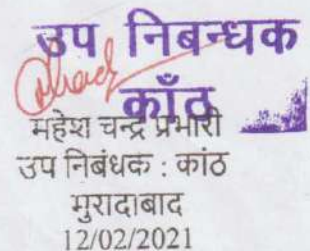 उप निबन्धक
काँठ
महेश चन्द्र प्रभारी
उप निबंधक : कांठ
मुरादाबाद
12/02/2021